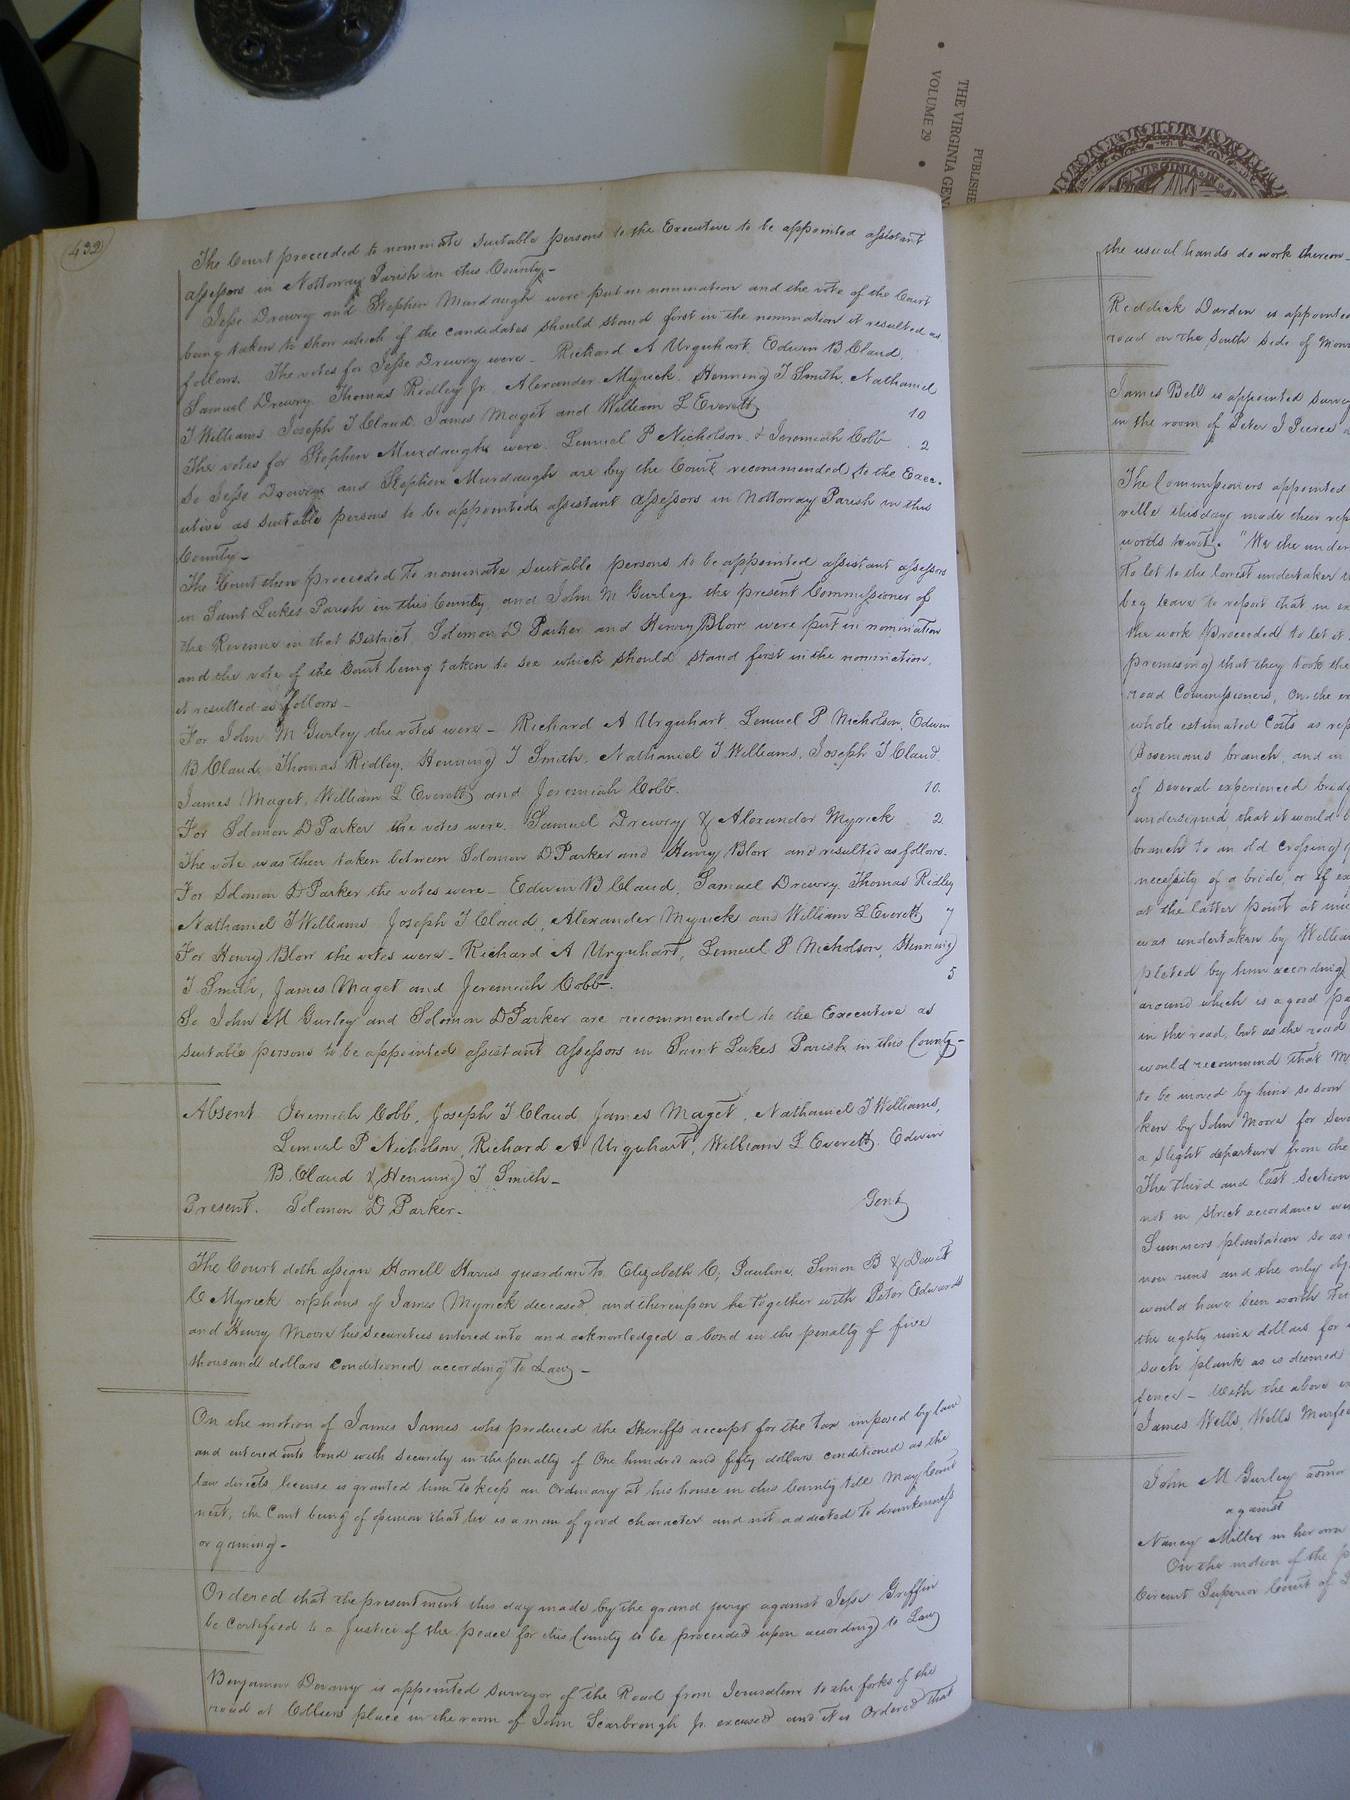 THE VIRGINIA GEN
VOLUME 29
PUBLISHE
VIRGINIA IN
432
The Court proceeded to nominate suitable persons to the Executive to be appointed assistant
assessors in Nottoway Parish in this County-
Jesse Drewry and Stephen Murdaugh were put in nomination and the vote of the Court
being taken to show which of the candidates should stand first in the nomination it resulted as
follows. The votes for Jesse Drewry were - Richard A Urquhart, Edwin B Claud,
Samuel Drewry Thomas Ridley Jr. Alexander Myrick. Henning T Smith, Nathaniel
T Williams Joseph T Claud. James Maget and William L Everett 10
The votes for Stephen Murdaugh were. Lemuel P Nicholson. & Jeremiah Cobb 2
So Jesse Drewry and Stephen Murdaugh are by the Court recommended to the Exec-
utive as suitable persons to be appointed assistant assessors in Nottoway Parish in this
County-
The Court then proceeded to nominate suitable persons to be appointed assistant assessors
in Saint Lukes Parish in this County, and John M Gurley the present Commissioner of
the Revenue in that District, Solomon D Parker and Henry Blow were put in nomination
and the vote of the Court being taken to see which should stand first in the nomination,
it resulted as follows-
For John M Gurley the votes were - Richard A Urquhart Lemuel P Nicholson, Edwin
B Claud, Thomas Ridley, Henning T Smith, Nathaniel T Williams, Joseph T Claud,
James Maget, William L Everett and Jeremiah Cobb. 10.
For Solomon D Parker the votes were. Samuel Drewry & Alexander Myrick 2
The vote was then taken between Solomon D Parker and Henry Blow and resulted as follows.
For Solomon D Parker the votes were - Edwin B Claud, Samuel Drewry, Thomas Ridley
Nathaniel T Williams Joseph T Claud, Alexander Myrick and William L Everett, 7
For Henry Blow the votes were - Richard A Urquhart, Lemuel P Nicholson, Henning
T Smith, James Maget and Jeremiah Cobb. 5
So John M Gurley and Solomon D Parker are recommended to the Executive as
suitable persons to be appointed assistant assessors in Saint Lukes Parish in this County-
Absent Jeremiah Cobb, Joseph T Claud James Maget, Nathaniel T Williams,
Lemuel P Nicholson, Richard A Urquhart, William L Everett, Edwin
B Claud & Henning T Smith-
Present. Solomon D Parker. Gent
The Court doth assign Howell Harris guardian to Elizabeth C, Paulina, Simon B & David
C Myrick orphans of James Myrick deceased, and thereupon he together with Peter Edwards
and Henry Moore his securities entered into and acknowledged a bond in the penalty of five
thousand dollars conditioned according to Law-
On the motion of James James who produced the Sheriffs receipt for the tax imposed by law
and entered into bond with security in the penalty of One hundred and fifty dollars conditioned as the
law directs license is granted him to keep an Ordinary at his house in this County till May Court
next, the Court being of opinion that he is a man of good character and not addicted to drunkenness
or gaming-
Ordered that the presentment this day made by the grand jury against Jesse Griffin
be Certified to a Justice of the peace for this County to be proceeded upon according to Law
Benjamin Devany is appointed surveyor of the Road from Jerusalem to the forks of the
road at Colliers place in the room of John Scarbrough Jr. excused and it is Ordered that
the usual hands do work thereon-
Reddick Darden is appointed
road on the South side of
James Bell is appointed
in the room of Peter J Pierce
The Commissioners appointed
ville this day made their rep
words towit. "We the under
to let to the lowest undertaker
beg leave to report that in
the work proceeded to let it
premising that they took the
road Commissioners, On the
whole estimated Costs as rep
Bosemans branch, and in
of several experienced bridg
undersigned that it would
branch to an old crossing
necessity of a bride, or if
at the latter point at
was undertaken by William
pleted by him according
around which is a good pa
in the road, but as the road
would recommend that M
to be moved by him so soon
ken by John Moore for
a slight departure from the
The third and last Section
not in strict accordance
Summers plantation so as
now runs and the only obj
would have been worth
the eighty nine dollars for
such plank as is deemed
fence - With the above
James Wells, Wells Murfee
John M Gurley
against
Nancy Miller in her own
On the motion of the
Circuit Superior Court of